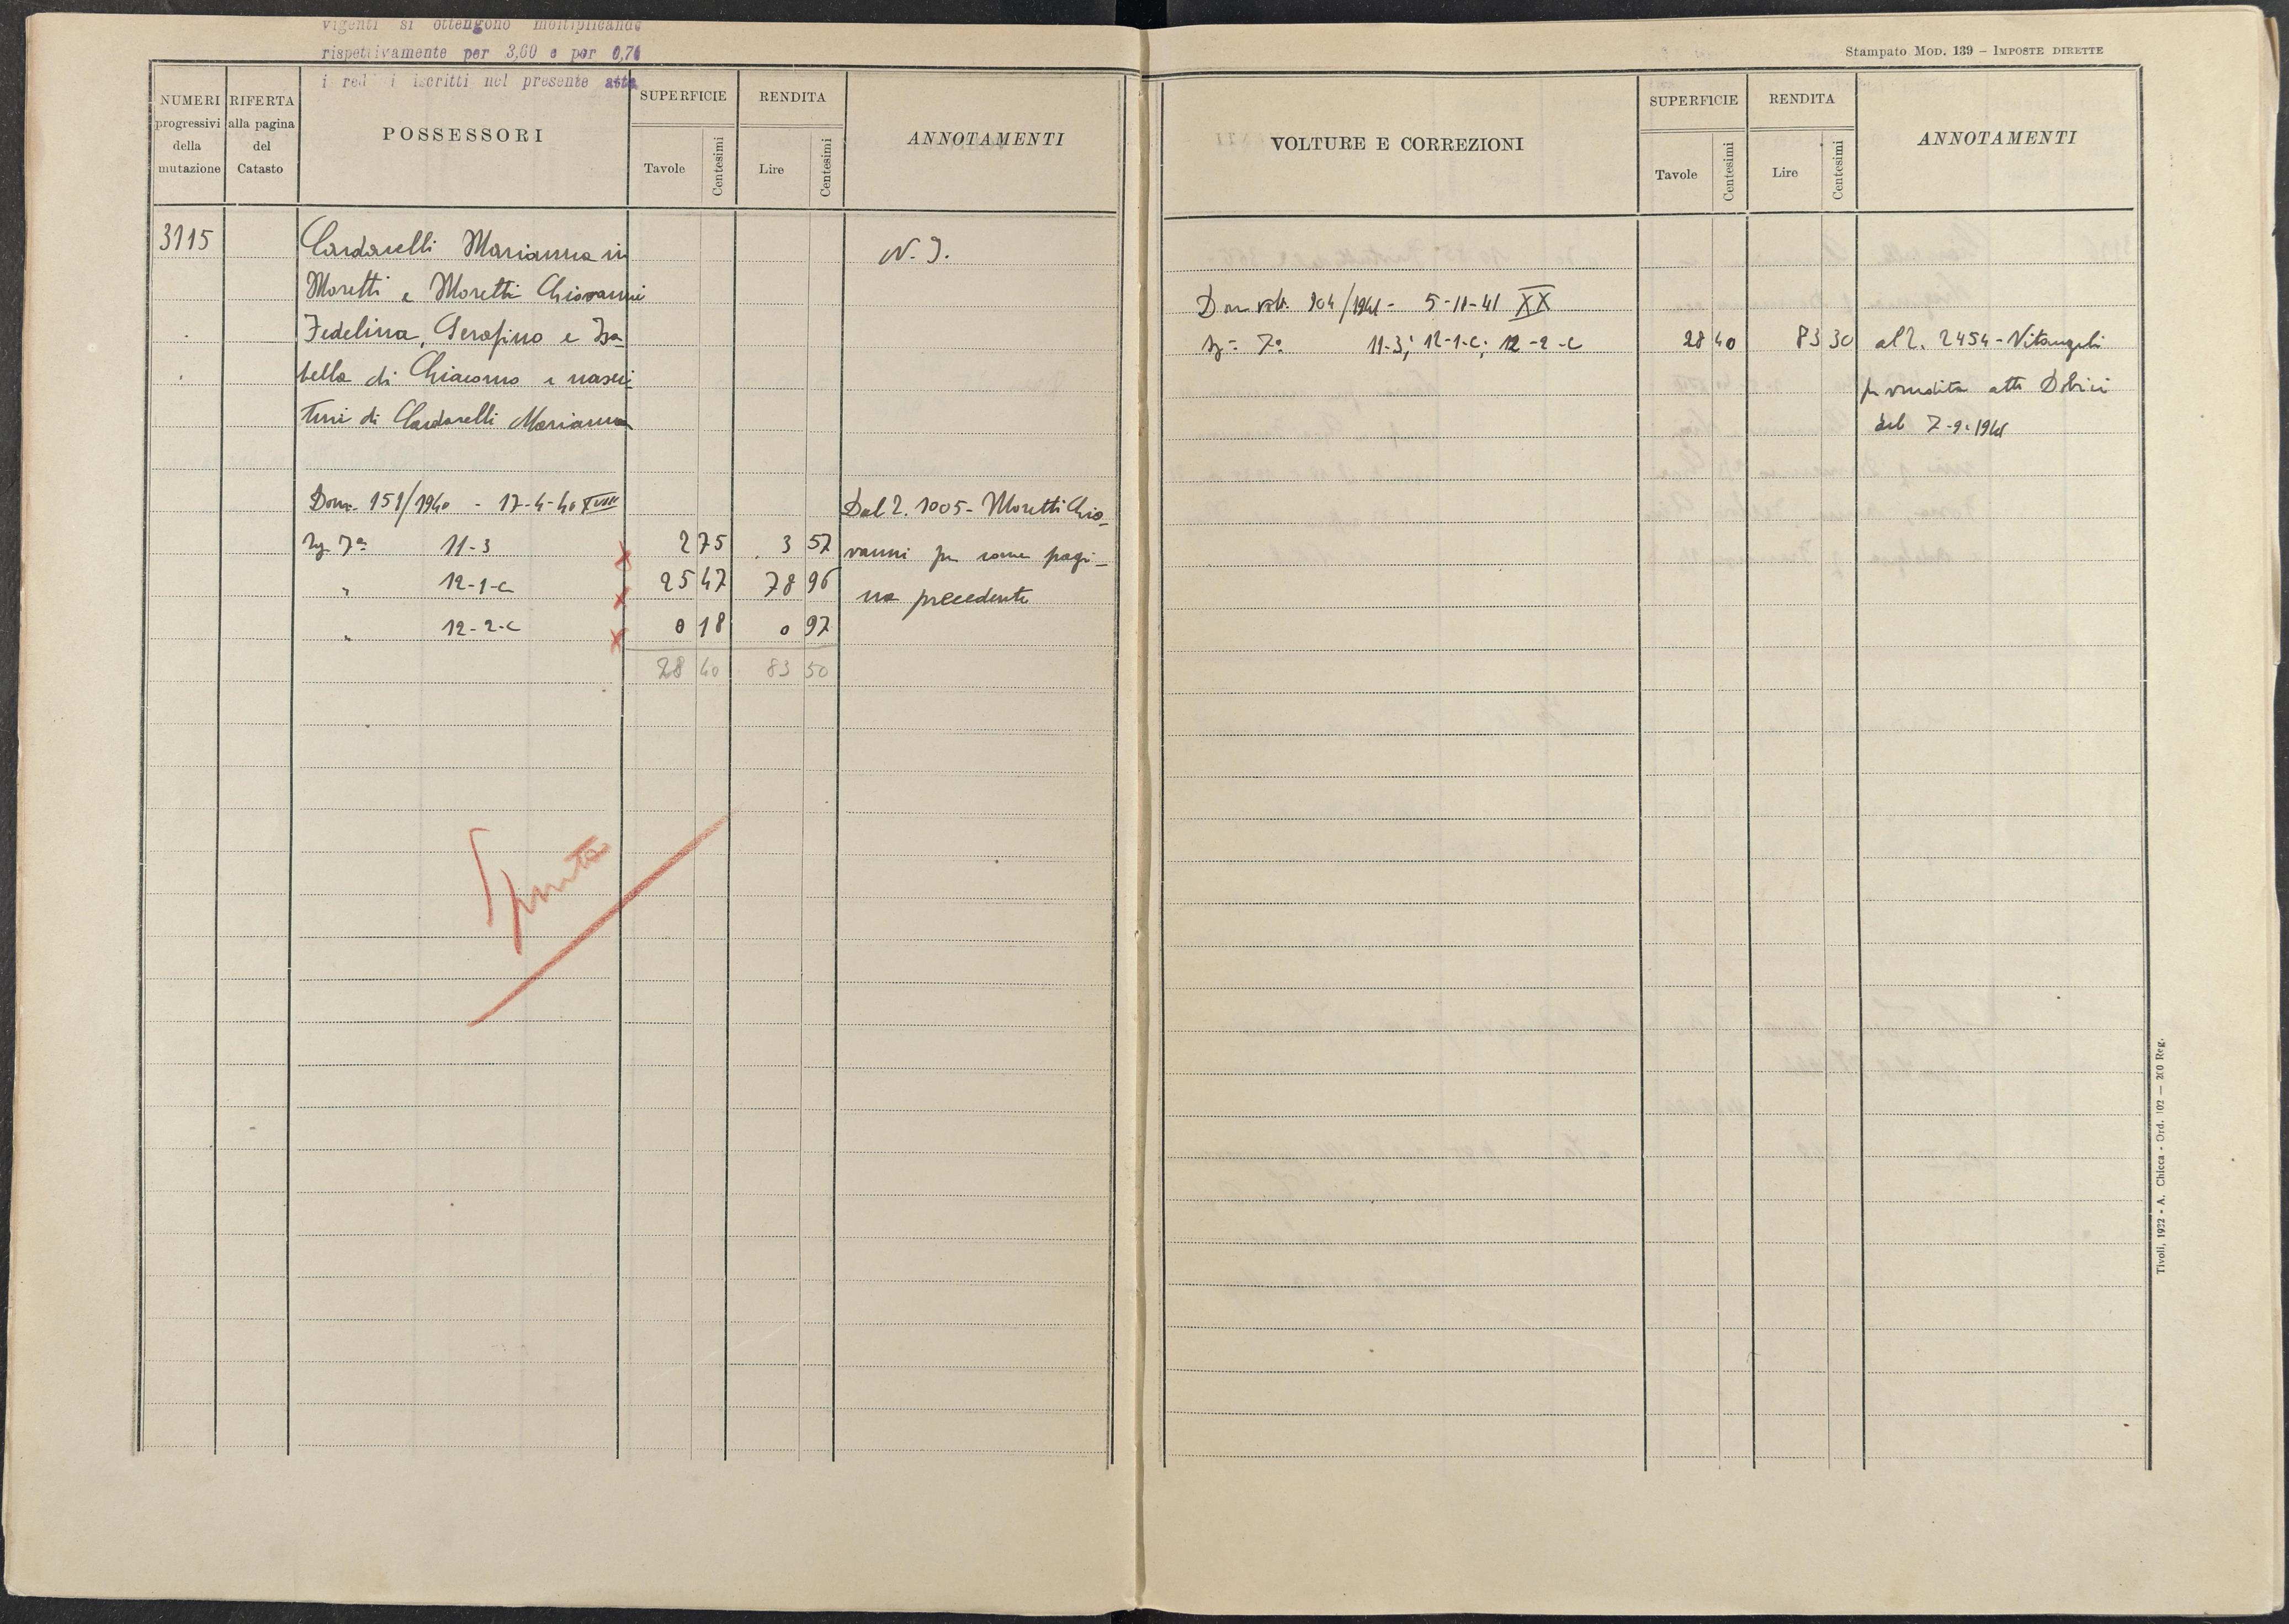 vigenti si ottengono moltiplicando
rispettivamente per 3,60 e per 0,76
i redditi iscritti nel presente atto
NUMERI progressivi della mutazione
RIFERTA alla pagina del Catasto
POSSESSORI
SUPERFICIE
Tavole
Centesimi
RENDITA
Lire
Centesimi
ANNOTAMENTI
3115
Cardarelli Marianna in
N. I.
Moretti e Moretti Giovanni
Fedelina, Serafino e Isa-
bella di Giacomo e nasci-
turi di Cardarelli Marianna
Dom. 151/1940 - 17-4-40 XVIII
Dal 2. 1005 - Moretti Gio-
Sz. 7a 11-3 x 2 75 3 57
vanni per come pagi-
" 12-1-c x 25 47 78 96
na precedente
" 12-2-c x 0 18 0 97
28 40 83 50
Spunta
Stampato Mod. 139 – Imposte dirette
VOLTURE E CORREZIONI
SUPERFICIE
Tavole
Centesimi
RENDITA
Lire
Centesimi
ANNOTAMENTI
Dom volt. 104/1941 - 5-11-41 XX
Sz = 7a 11-3; 12-1-c; 12-2-c 28 40 83 30 al 2. 2454 - Vitangeli
per vendita atti
del 7-9-1941
Tivoli, 1932 - A. Chicca - Ord. 102 — 200 Reg.